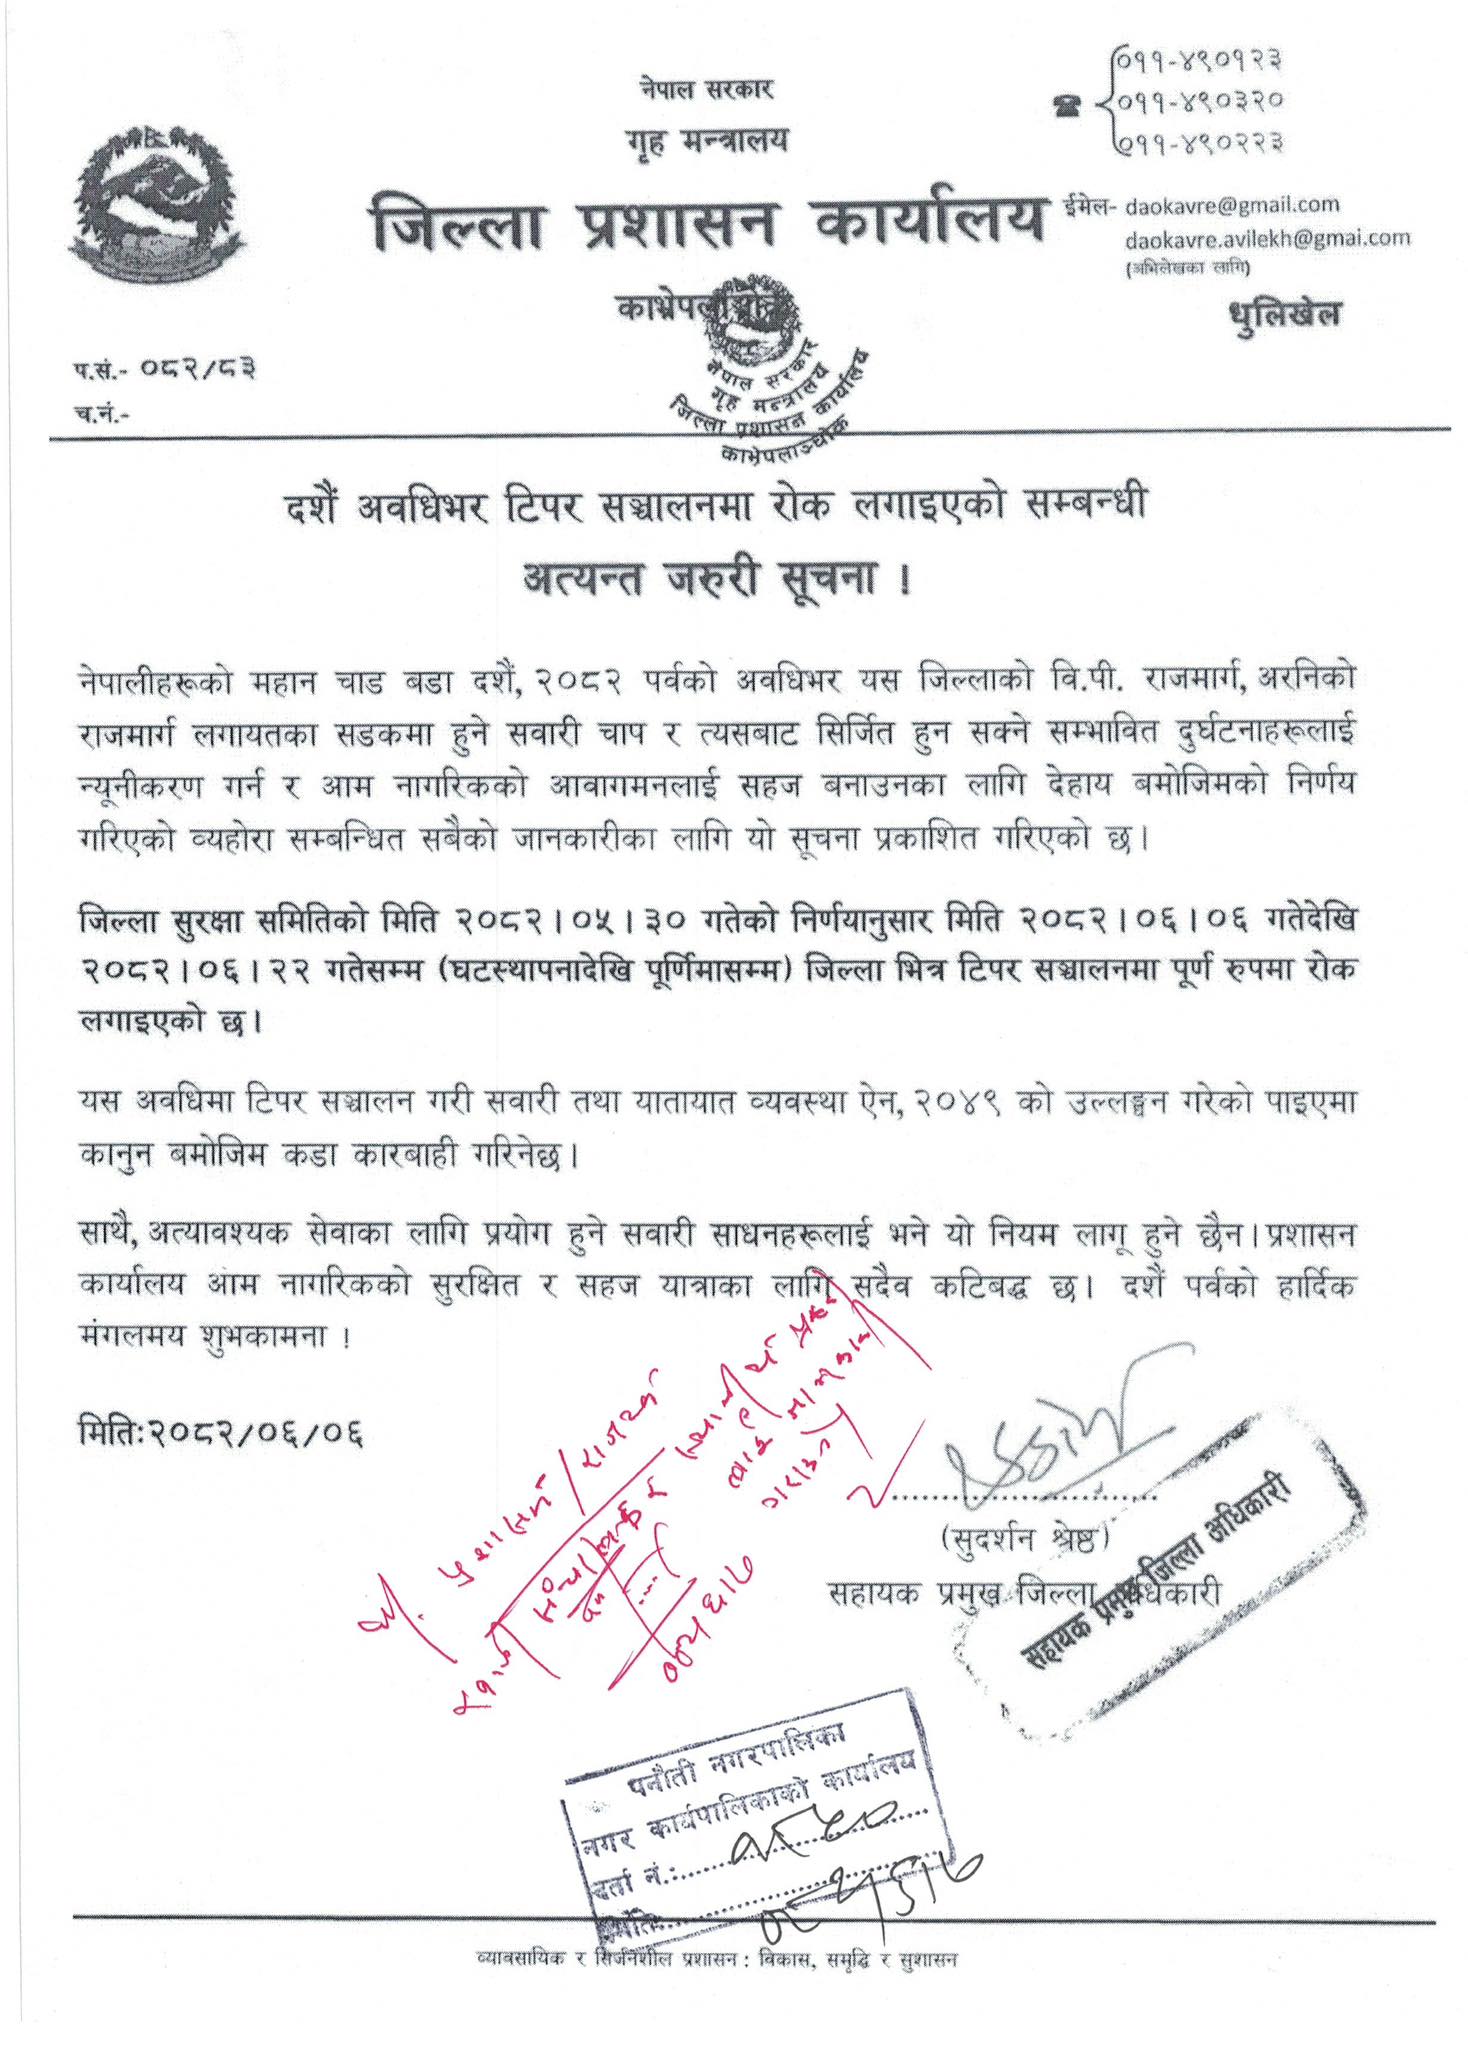 नेपाल सरकार
गृह मन्त्रालय
जिल्ला प्रशासन कार्यालय
☎ ०११-४९०१२३
०११-४९०३२०
०११-४९०२२३
ईमेल- daokavre@gmail.com
daokavre.avilekh@gmai.com
(अभिलेखका लागि)
धुलिखेल
नेपाल सरकार
गृह मन्त्रालय
जिल्ला प्रशासन कार्यालय
काभ्रेपलाञ्चोक
प.सं.- ०८२/८३
च.नं.-
दशैं अवधिभर टिपर सञ्चालनमा रोक लगाइएको सम्बन्धी
अत्यन्त जरुरी सूचना !
नेपालीहरूको महान चाड बडा दशैं, २०८२ पर्वको अवधिभर यस जिल्लाको वि.पी. राजमार्ग, अरनिको
राजमार्ग लगायतका सडकमा हुने सवारी चाप र त्यसबाट सिर्जित हुन सक्ने सम्भावित दुर्घटनाहरूलाई
न्यूनीकरण गर्न र आम नागरिकको आवागमनलाई सहज बनाउनका लागि देहाय बमोजिमको निर्णय
गरिएको व्यहोरा सम्बन्धित सबैको जानकारीका लागि यो सूचना प्रकाशित गरिएको छ।
जिल्ला सुरक्षा समितिको मिति २०८२।०५।३० गतेको निर्णयानुसार मिति २०८२।०६।०६ गतेदेखि
२०८२।०६।२२ गतेसम्म (घटस्थापनादेखि पूर्णिमासम्म) जिल्ला भित्र टिपर सञ्चालनमा पूर्ण रुपमा रोक
लगाइएको छ।
यस अवधिमा टिपर सञ्चालन गरी सवारी तथा यातायात व्यवस्था ऐन, २०४९ को उल्लङ्घन गरेको पाइएमा
कानुन बमोजिम कडा कारबाही गरिनेछ।
साथै, अत्यावश्यक सेवाका लागि प्रयोग हुने सवारी साधनहरूलाई भने यो नियम लागू हुने छैन। प्रशासन
कार्यालय आम नागरिकको सुरक्षित र सहज यात्राका लागि सदैव कटिबद्ध छ। दशैं पर्वको हार्दिक
मंगलमय शुभकामना !
मिति:२०८२/०६/०६
(सुदर्शन श्रेष्ठ)
सहायक प्रमुख जिल्ला अधिकारी
सहायक प्रमुख जिल्ला अधिकारी
पनौती नगरपालिका
नगर कार्यपालिकाको कार्यालय
दर्ता नं.:
मिति:
व्यावसायिक र सिर्जनशील प्रशासन : विकास, समृद्धि र सुशासन